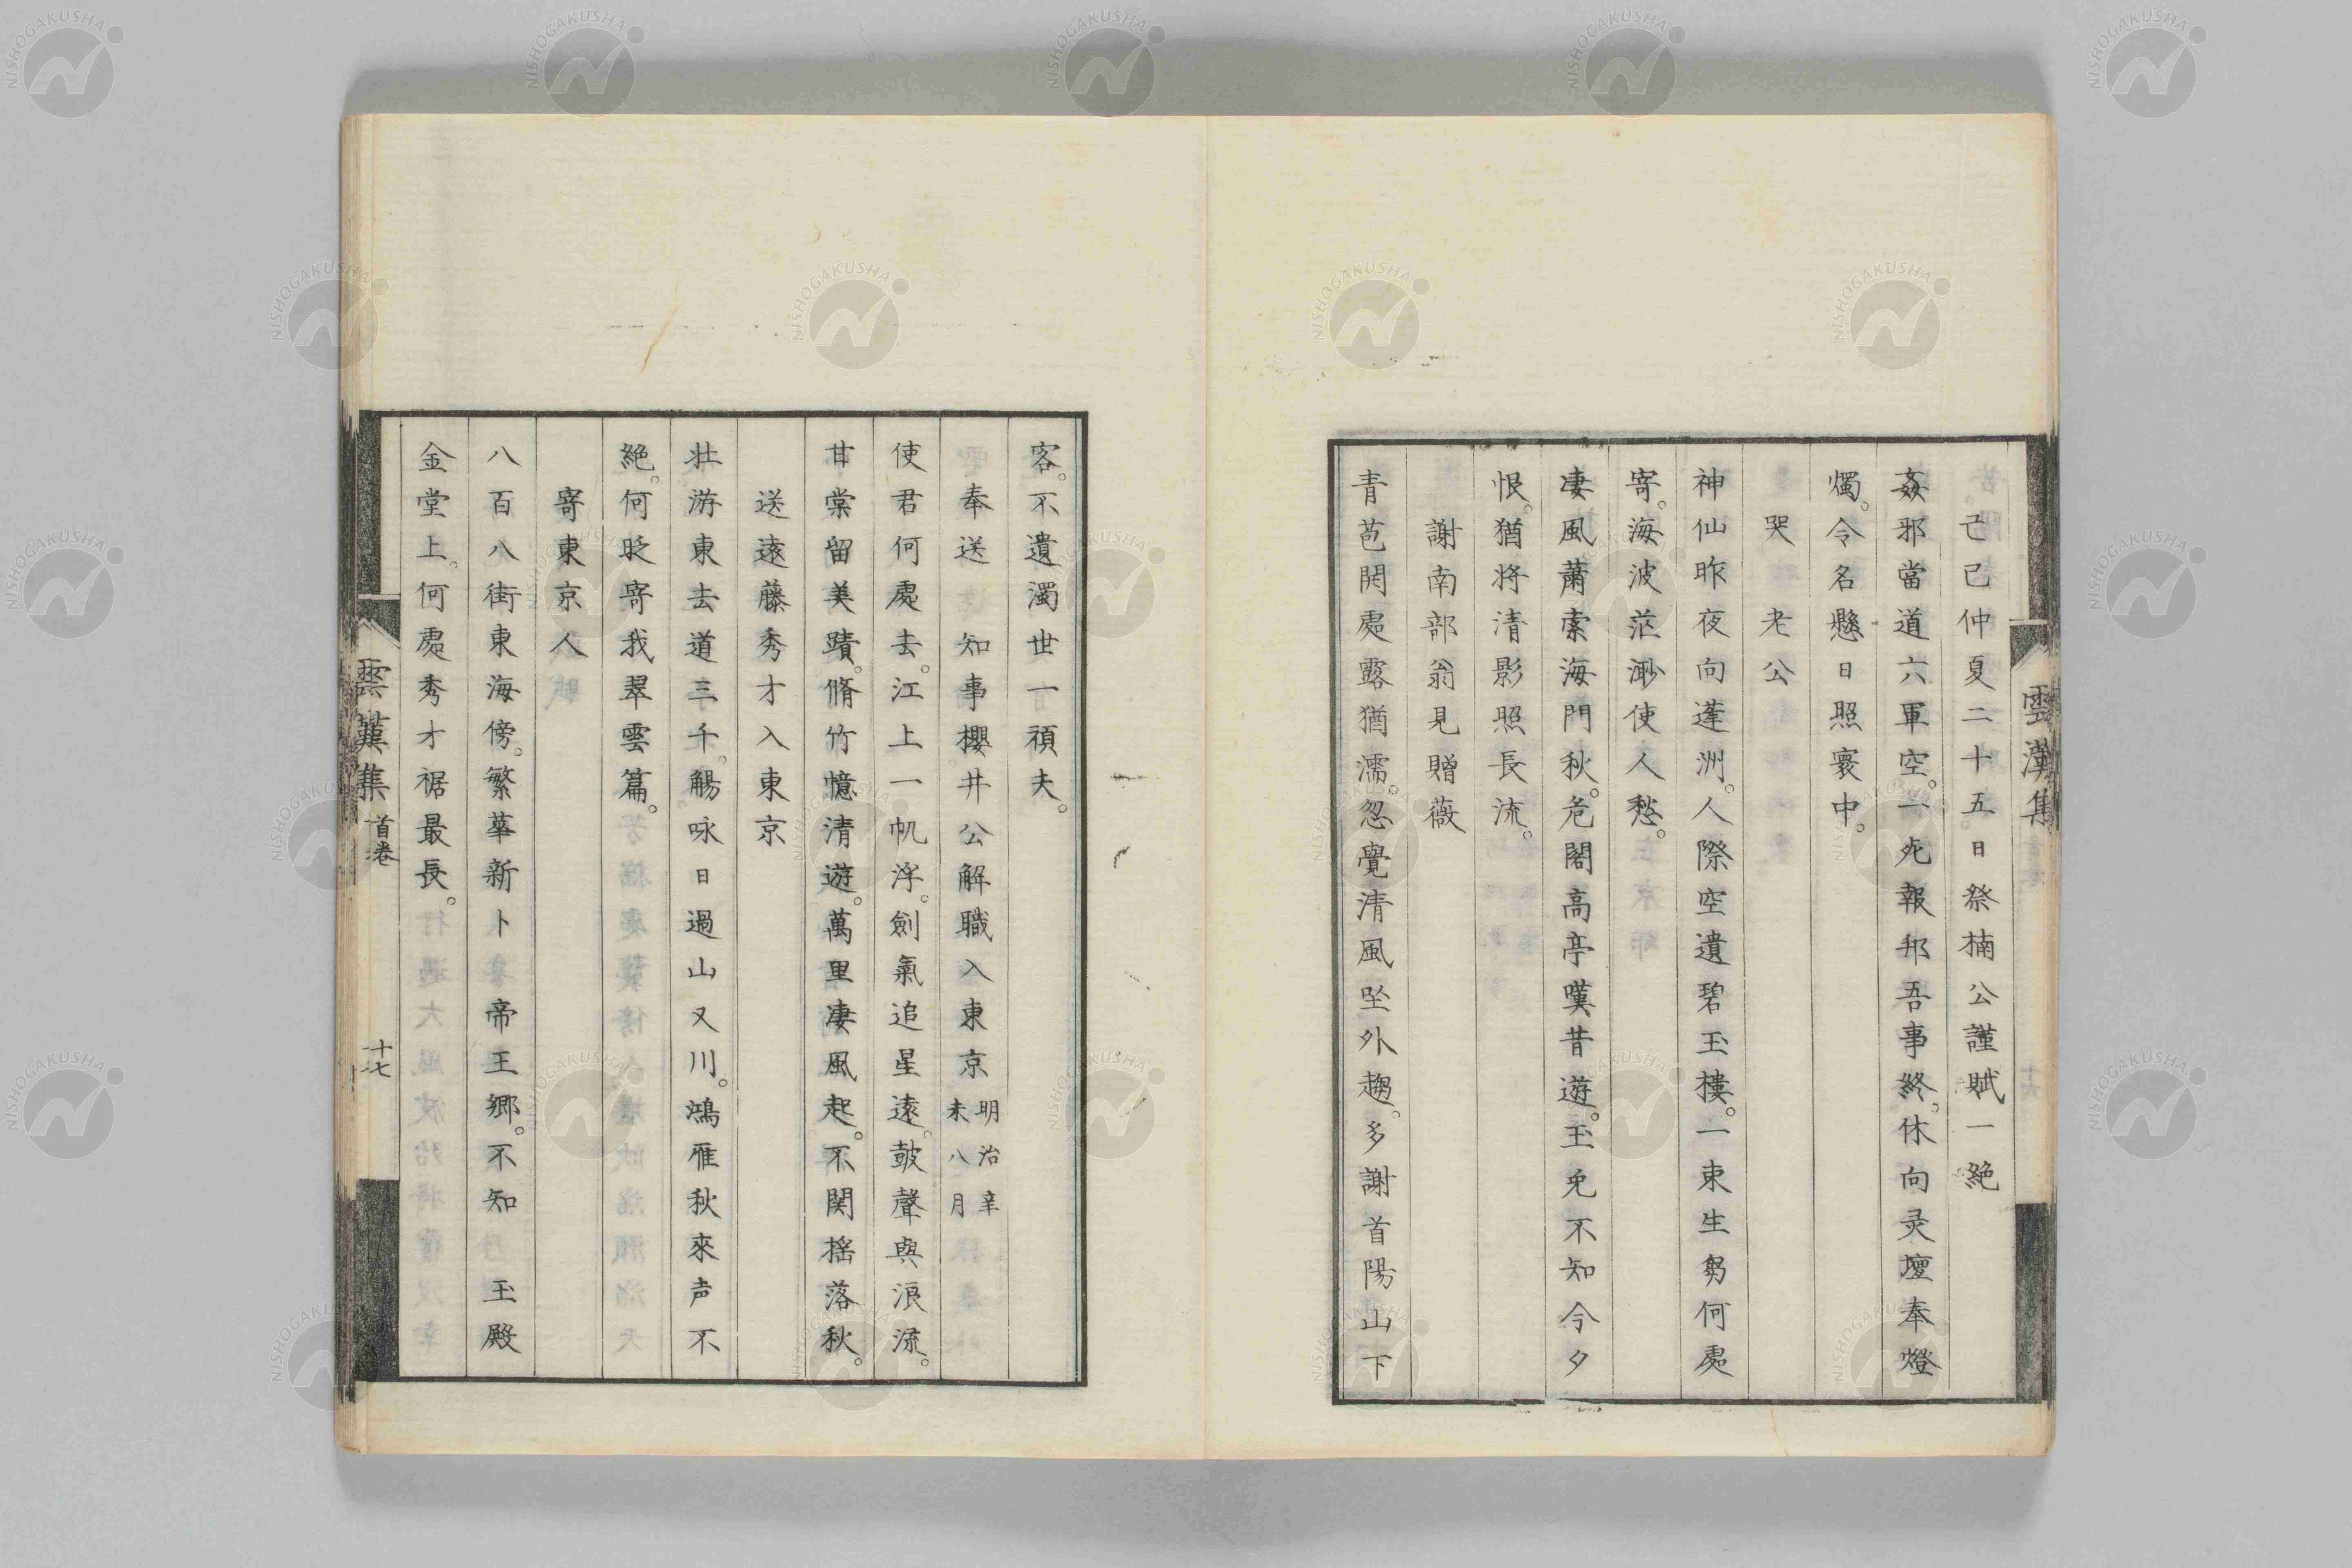 己巳仲夏二十五日祭楠公謹賦一絶
姦邪當道六軍空。一死報邦吾事終。休向灵壇奉燈
燭。令名懸日照寰中。
哭　老公
神仙昨夜向蓬洲。人際空遺碧玉樓。一束生芻何處
寄。海波茫渺使人愁。
凄風蕭索海門秋。危閣高亭嘆昔遊。玉兎不知今夕
恨。猶将清影照長流。
謝南部翁見贈薇
青苞開處露猶濡。忽覺清風坐外趨。多謝首陽山下
雲漢集
客。不遺濁世一頑夫。
奉送　知事櫻井公解職入東京 明治辛未八月
使君何處去。江上一帆浮。劍氣追星遠。鼓聲與浪流。
甘棠留美蹟。脩竹憶清遊。萬里凄風起。不関揺落秋。
送遠藤秀才入東京
壮游東去道三千。觴咏日過山又川。鴻雁秋來声不
絶。何時寄我翠雲篇。
寄東京人
八百八街東海傍。繁華新卜　帝王郷。不知　玉殿
金堂上。何處秀才裾最長。
雲漢集 首巻 十七
NISHOGAKUSHA